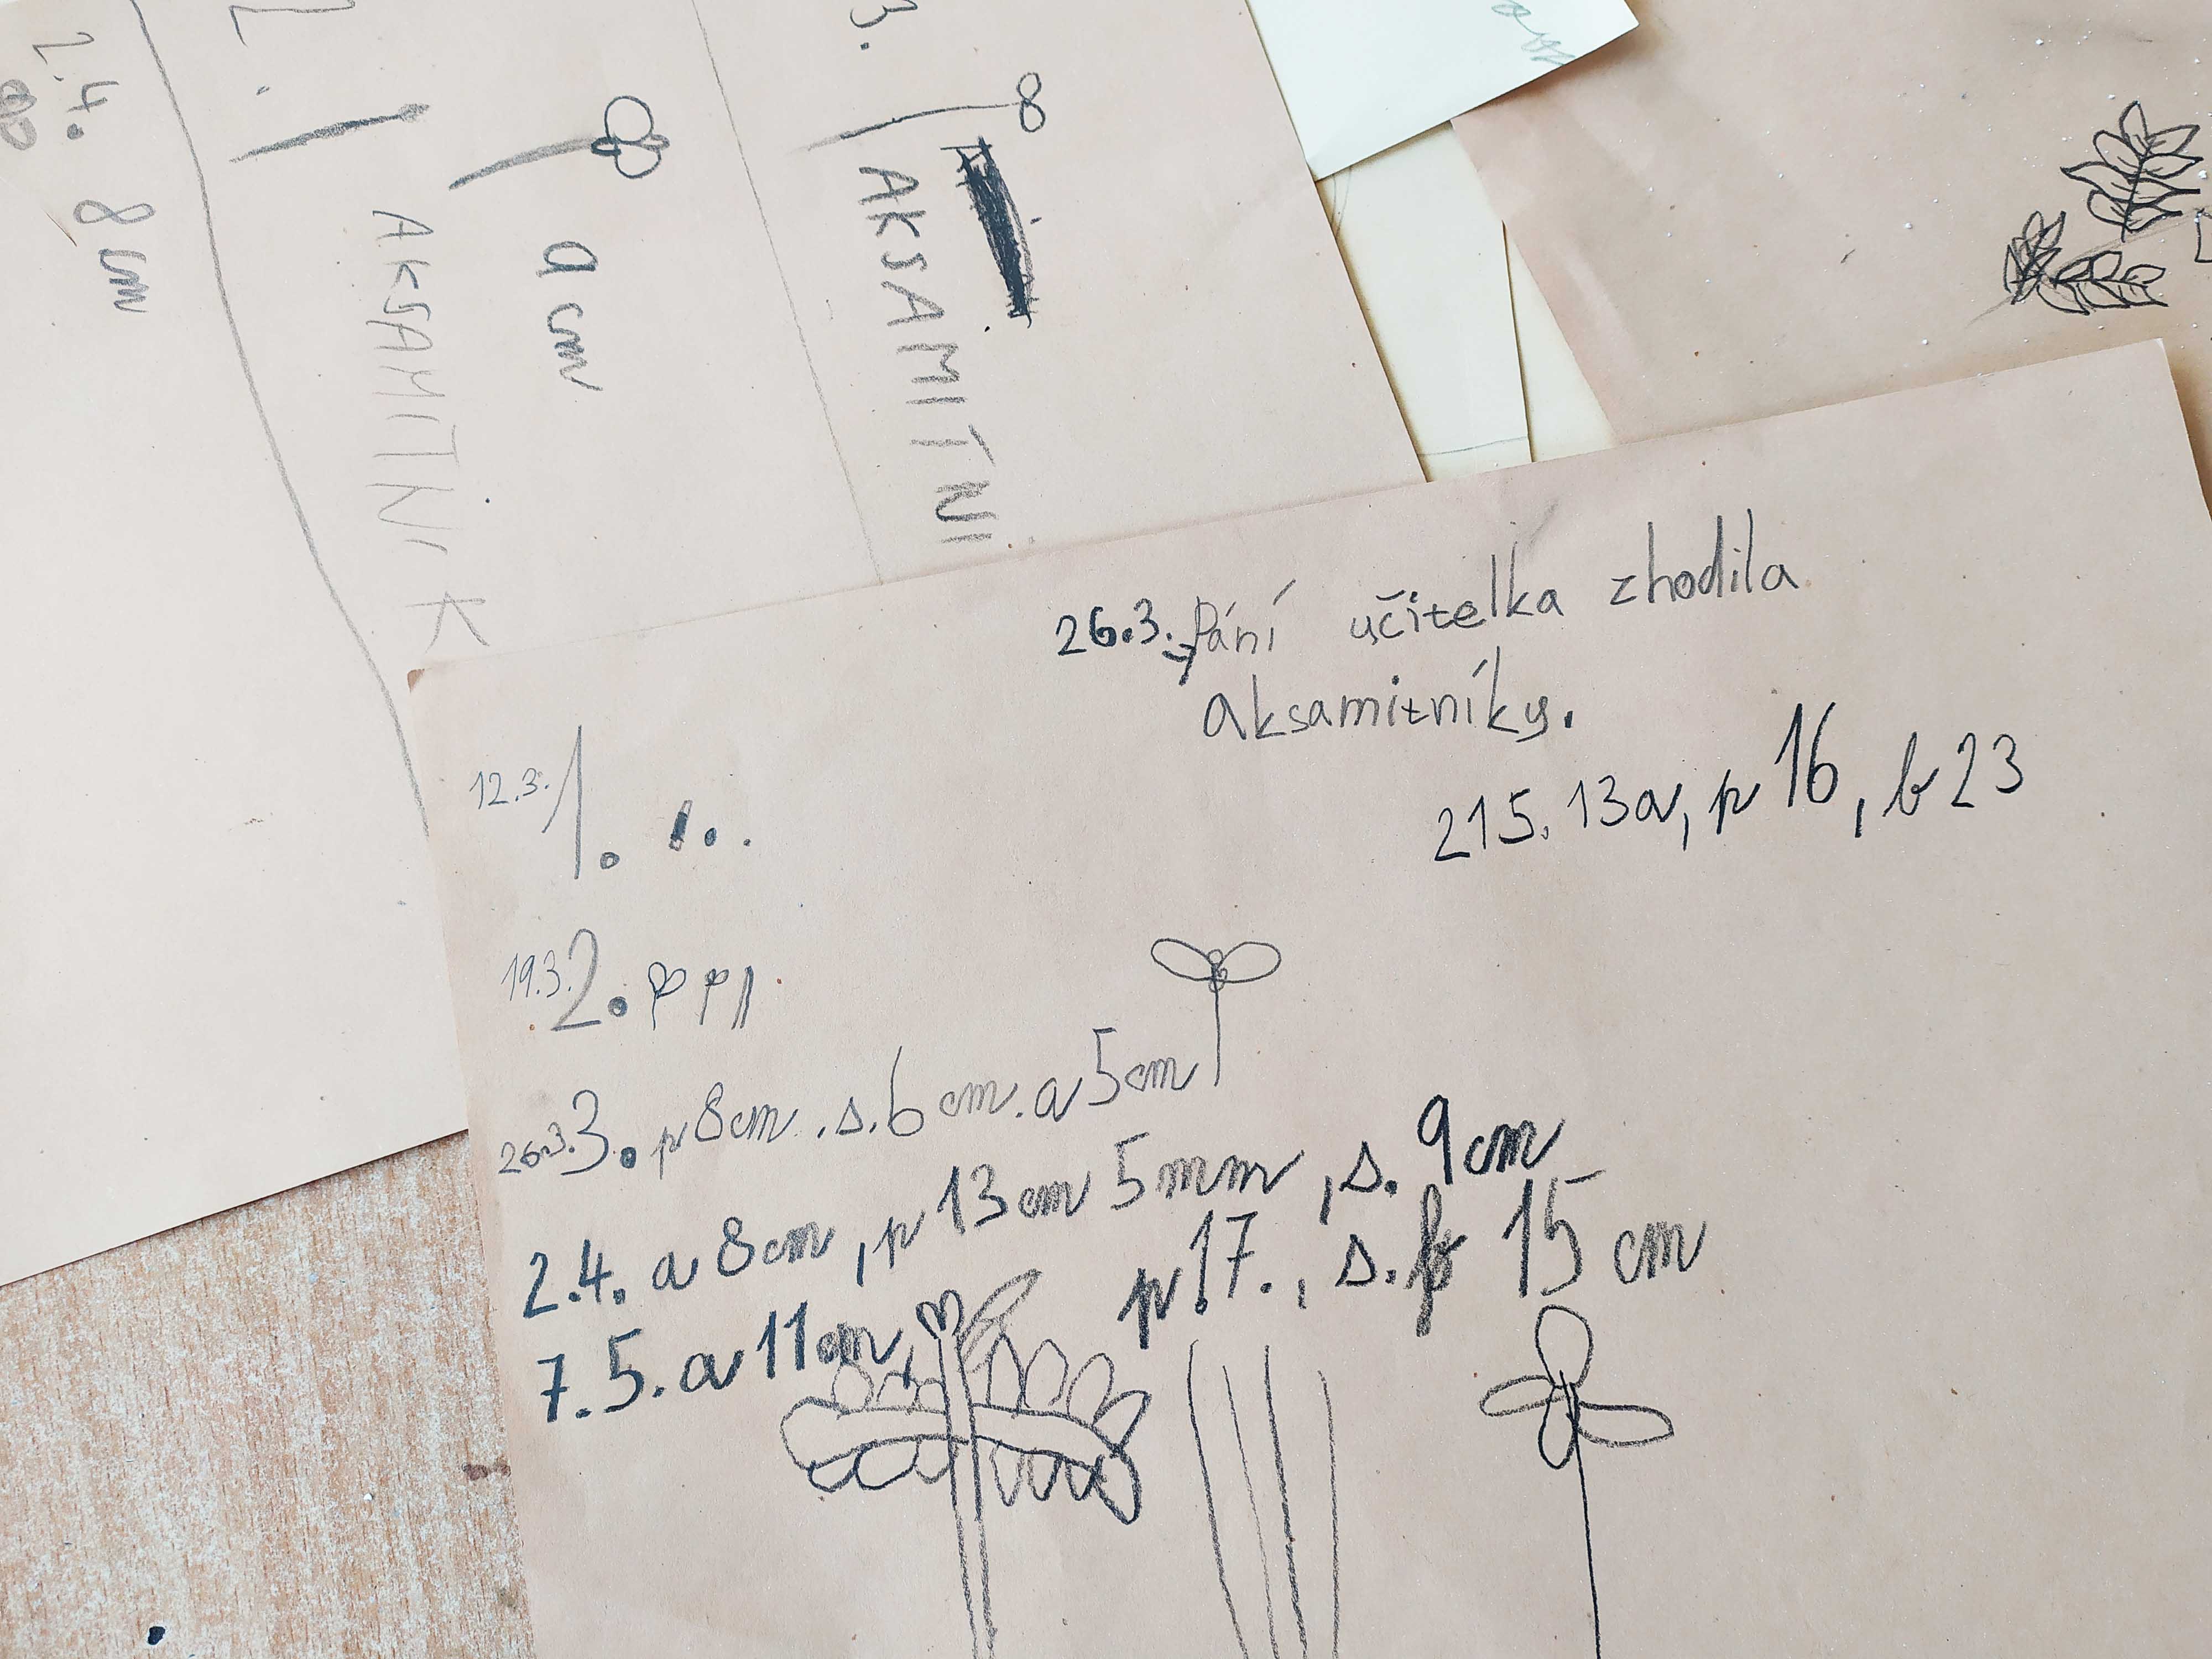 2.4.
8cm
2.
AKSAMITNíK
a cm
3.
AKSAMITNI
26.3. Pání učitelka zhodila
aksamitníky.
215. 13a, p 16, b 23
12.3. 1.
19.3. 2.
26.3. 3. p 8cm. s. 6cm. a 5cm
2.4. a 8cm, p 13cm 5mm, s. 9cm
7.5. a 11cm, p 17., s. 15 cm